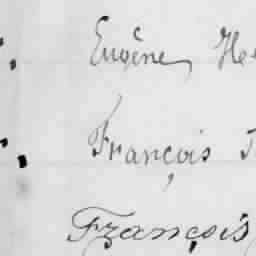 Eugène He
François
François